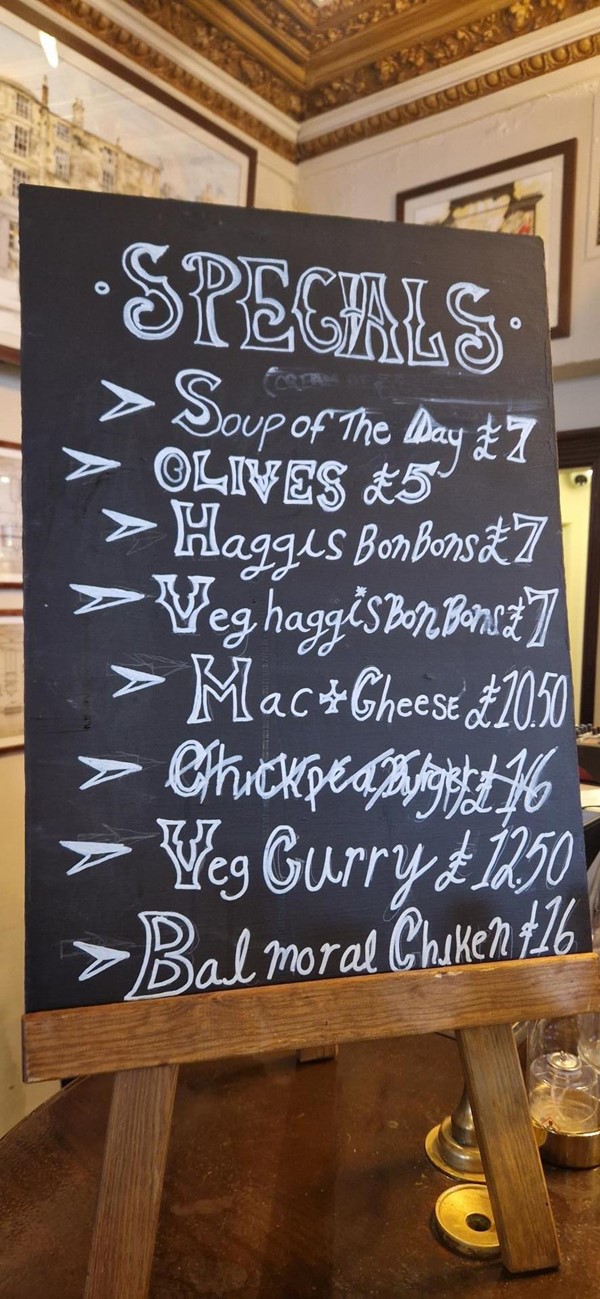 · SPECIALS ·
Soup of The Day £7
OLIVES £5
Haggis BonBons £7
Veg haggis BonBons £7
Mac + Cheese £10.50
Chickpea Burger £16
Veg Curry £12.50
Balmoral Chiken £16